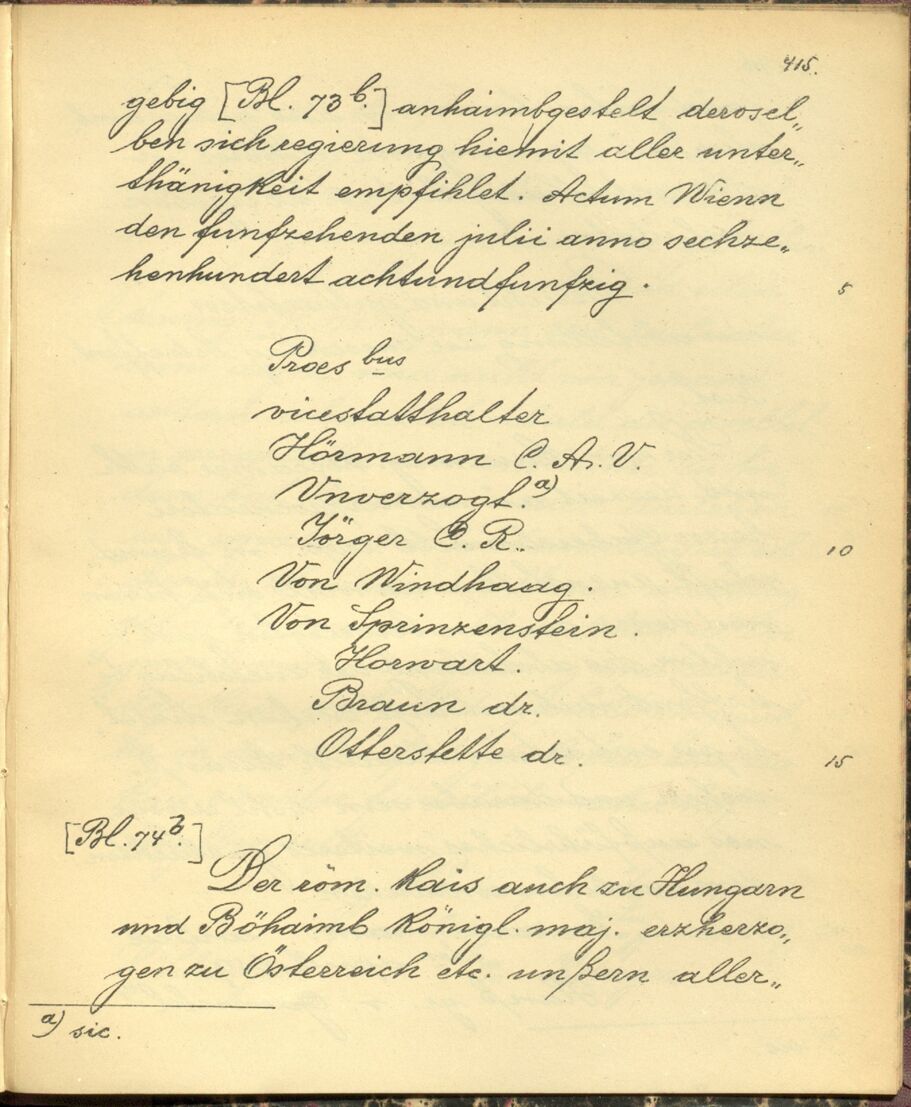 415.
gebig [Bl. 73b.] anhaimbgestelt derosel„
ben sich regierung hiemit aller unter„
thänigkeit empfihlet. Actum Wienn
den funfzehenden julii anno sechze„
henhundert achtundfunfzig. 5
Praes bus
vicestatthalter
Hörmann C. A. V.
Unverzogt.a)
Jörger C. R. 10
Von Windhaag.
Von Sprinzenstein.
Horwart.
Braun dr.
Otterstette dr. 15
[Bl. 74b.]
Der röm. Kais auch zu Hungarn
und Böhaimb Königl. maj. erzherzo„
gen zu Österreich etc. unßern aller„
a) sic.